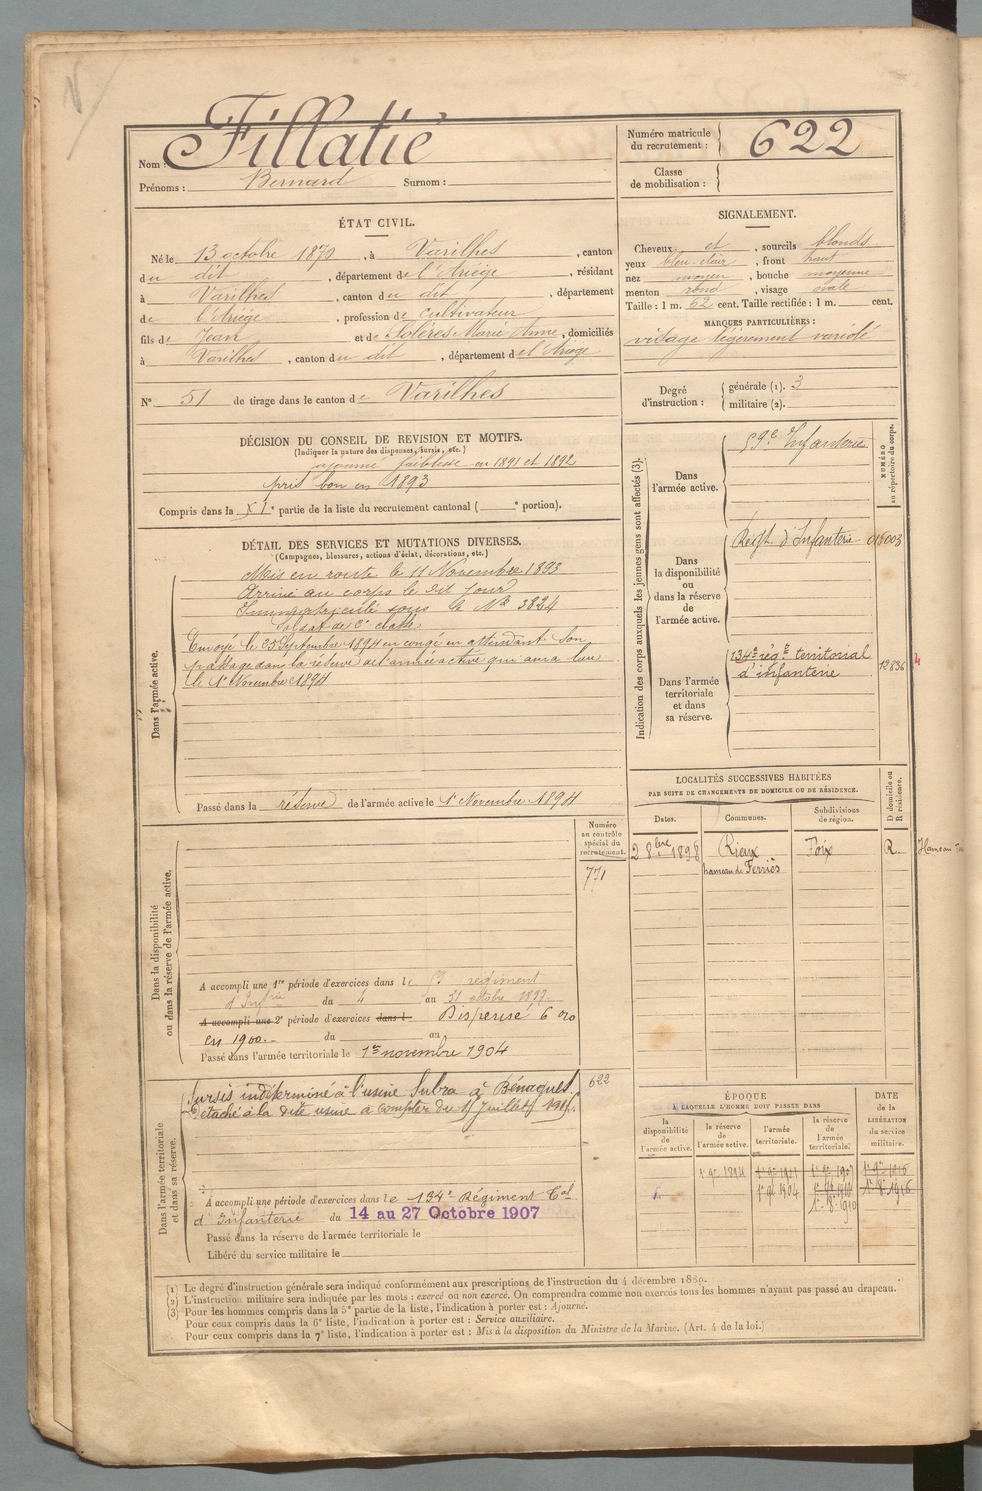 Nom : Fillatié
Prénoms : Bernard Surnom :
Numéro matricule du recrutement : 622
Classe de mobilisation :
ÉTAT CIVIL.
Né le 13 octobre 1870, à Varilhes, canton
du dit, département de l'Ariège, résidant
à Varilhes, canton du dit, département
de l'Ariège, profession de cultivateur
fils de Jean et de Solères Marie Anne, domiciliés
à Varilhes, canton du dit, département de l'Ariège
N° 51 de tirage dans le canton de Varilhes
SIGNALEMENT.
Cheveux et, sourcils blonds
yeux bleu-clair, front haut
nez moyen, bouche moyenne
menton rond, visage ovale
Taille : 1 m. 62 cent. Taille rectifiée : 1 m. cent.
MARQUES PARTICULIÈRES :
visage légèrement variolé
Degré d'instruction : générale (1). 3
militaire (2).
DÉCISION DU CONSEIL DE REVISION ET MOTIFS.
(Indiquer la nature des dispenses, sursis, etc.)
ajourné faiblesse en 1891 et 1892
pris bon en 1893
Compris dans la 1e partie de la liste du recrutement cantonal ( e portion).
DÉTAIL DES SERVICES ET MUTATIONS DIVERSES.
(Campagnes, blessures, actions d'éclat, décorations, etc.)
Dans l'armée active.
Mis en route le 11 Novembre 1893
Arrivé au corps le dit jour
Immatriculé sous le No 3824
Soldat de 2e classe
Envoyé le 25 Septembre 1894 en congé en attendant son
passage dans la réserve de l'armée active qui aura lieu
le 1er Novembre 1894
Passé dans la réserve de l'armée active le 1er Novembre 1894
Indication des corps auxquels les jeunes gens sont affectés (3).
NUMÉRO au répertoire du corps.
Dans l'armée active.
59e Infanterie
Dans la disponibilité ou dans la réserve de l'armée active.
Régt. d'Infanterie 015003
Dans l'armée territoriale et dans sa réserve.
134e régt territorial
d'infanterie
12836
LOCALITÉS SUCCESSIVES HABITÉES
PAR SUITE DE CHANGEMENTS DE DOMICILE OU DE RÉSIDENCE.
D domicile ou R résidence.
Dates. Communes. Subdivisions de région.
2 8bre 1898 Rieux Foix R. Hameau
hameau de Ferriès
Dans la disponibilité ou dans la réserve de l'armée active.
Numéro au contrôle spécial du recrutement.
771
A accompli une 1re période d'exercices dans le 59 régiment
d'Infrie du 4 au 31 octobre 1897
A accompli une 2e période d'exercices dans l Dispensé 6 020
en 1900.- du au
Passé dans l'armée territoriale le 1er novembre 1904
Dans l'armée territoriale et dans sa réserve.
622
Sursis indéterminé à l'usine Subra à Bénagues.
Détaché à la dite usine à compter du 1er Juillet
A accompli une période d'exercices dans le 134e Régiment Tal
d'Infanterie du 14 au 27 Octobre 1907
Passé dans la réserve de l'armée territoriale le
Libéré du service militaire le
ÉPOQUE
A LAQUELLE L'HOMME DOIT PASSER DANS
DATE de la LIBÉRATION du service militaire.
la disponibilité de l'armée active.
la réserve de l'armée active.
l'armée territoriale.
la réserve de l'armée territoriale.
(1) Le degré d'instruction générale sera indiqué conformément aux prescriptions de l'instruction du 4 décembre 1889.
(2) L'instruction militaire sera indiquée par les mots : exercé ou non exercé. On comprendra comme non exercés tous les hommes n'ayant pas passé au drapeau.
(3) Pour les hommes compris dans la 5e partie de la liste, l'indication à porter est : Ajourné.
Pour ceux compris dans la 6e liste, l'indication à porter est : Service auxiliaire.
Pour ceux compris dans la 7e liste, l'indication à porter est : Mis à la disposition du Ministre de la Marine. (Art. 4 de la loi.)